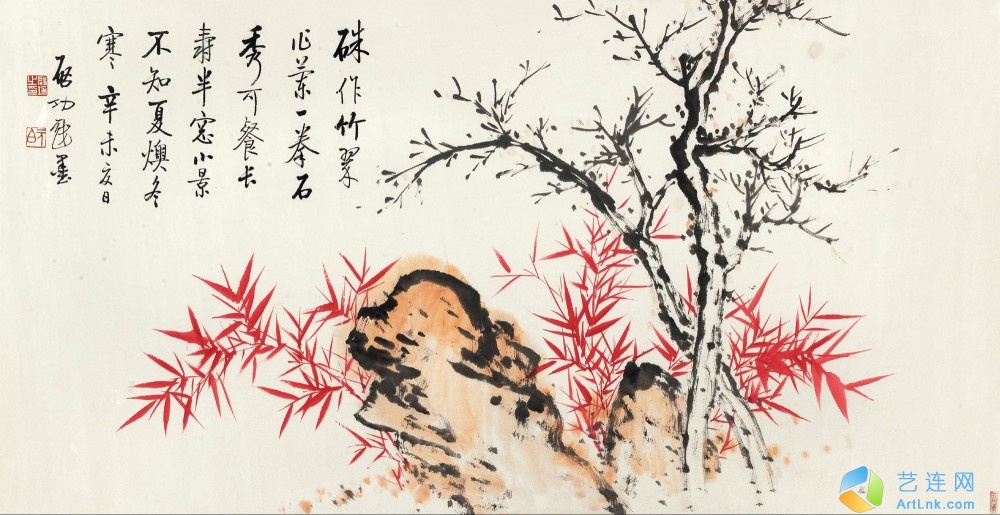 硃作竹翠
作蘭一拳石
秀可餐长
壽半窓小景
不知夏燠冬
寒 辛未夏日
啟功戲墨
艺连网
ArtLnk.com